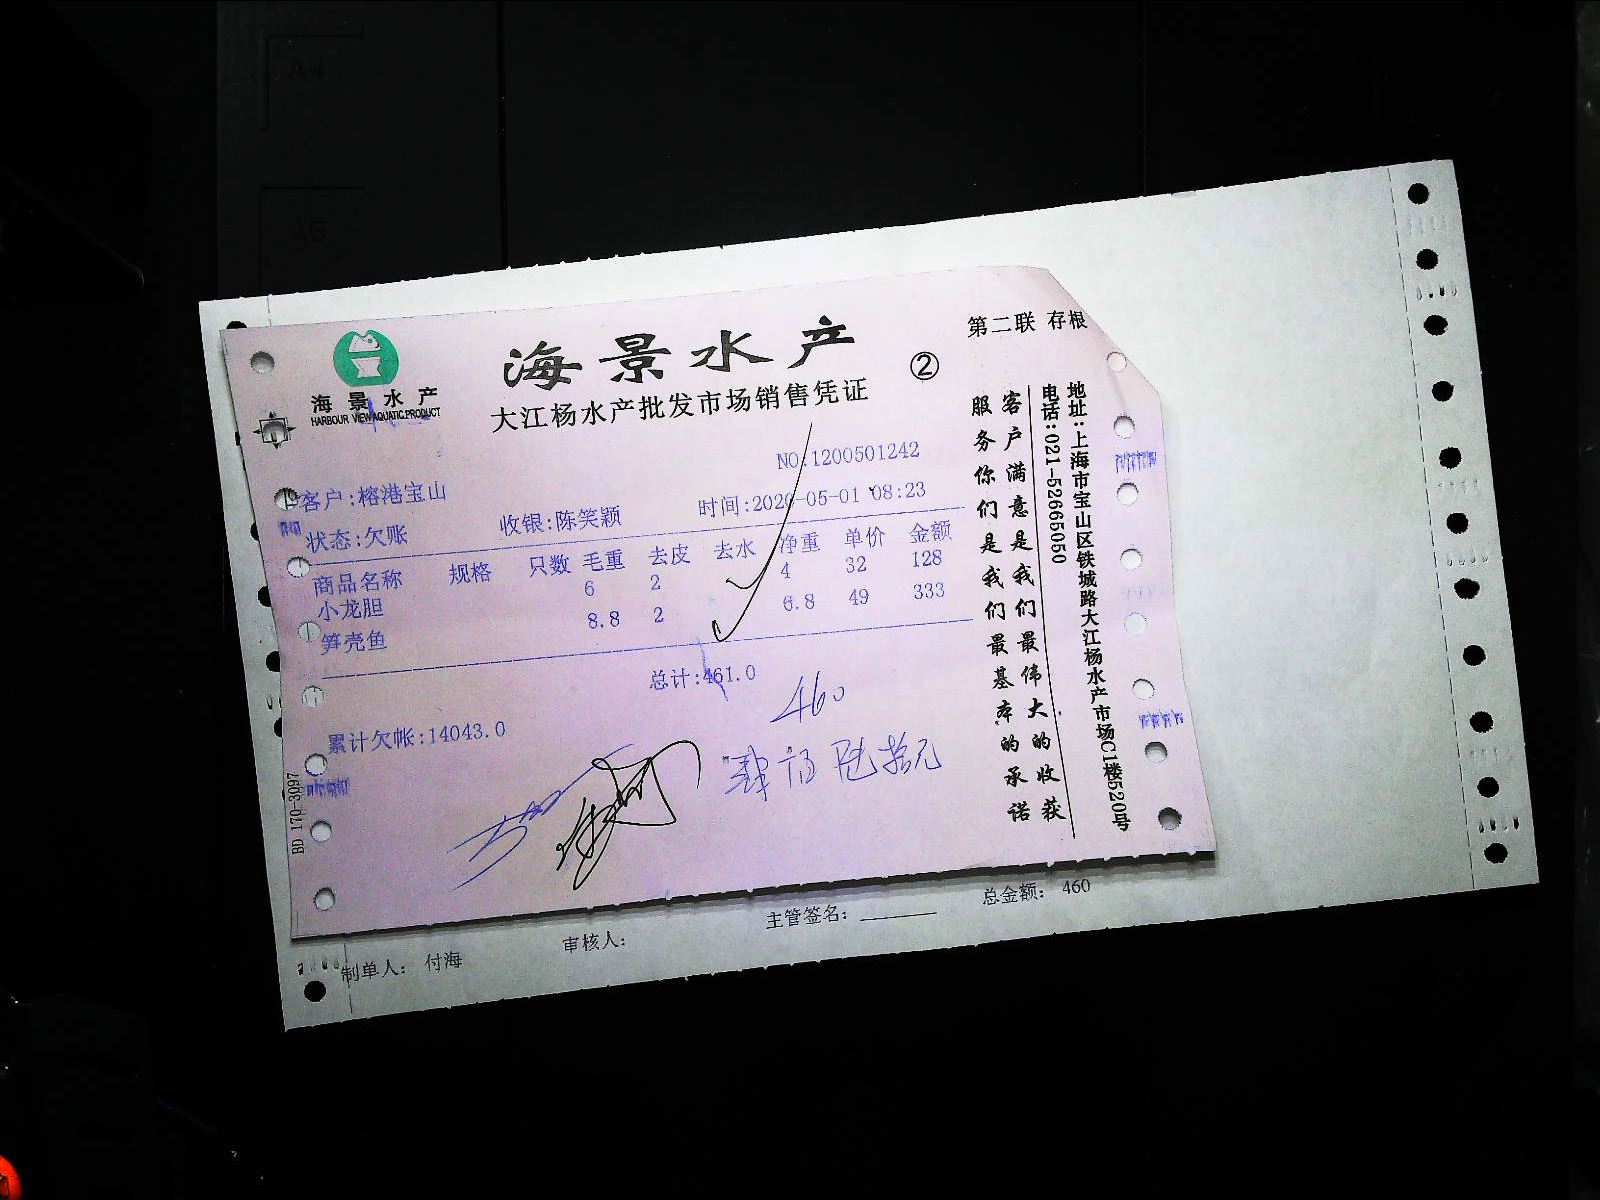 A4
海景水产
HARBOUR VIEW AQUATIC PRODUCT
海景水产
大江杨水产批发市场销售凭证
②
第二联 存根
NO.1200501242
客户:榕港宝山
状态:欠账
收银:陈笑颖
时间:2020-05-01 08:23
商品名称 规格 只数 毛重 去皮 去水 净重 单价 金额
小龙胆 6 2 4 32 128
笋壳鱼 8.8 2 6.8 49 333
总计:461.0
460
累计欠帐:14043.0
肆佰陆拾元
BD 170-3097
客户满意是我们最伟大的收获
服务你们是我们最基本的承诺
地址:上海市宝山区铁城路大江杨水产市场C1楼520号
电话:021-52665050
制单人: 付海
审核人:
主管签名:
总金额: 460